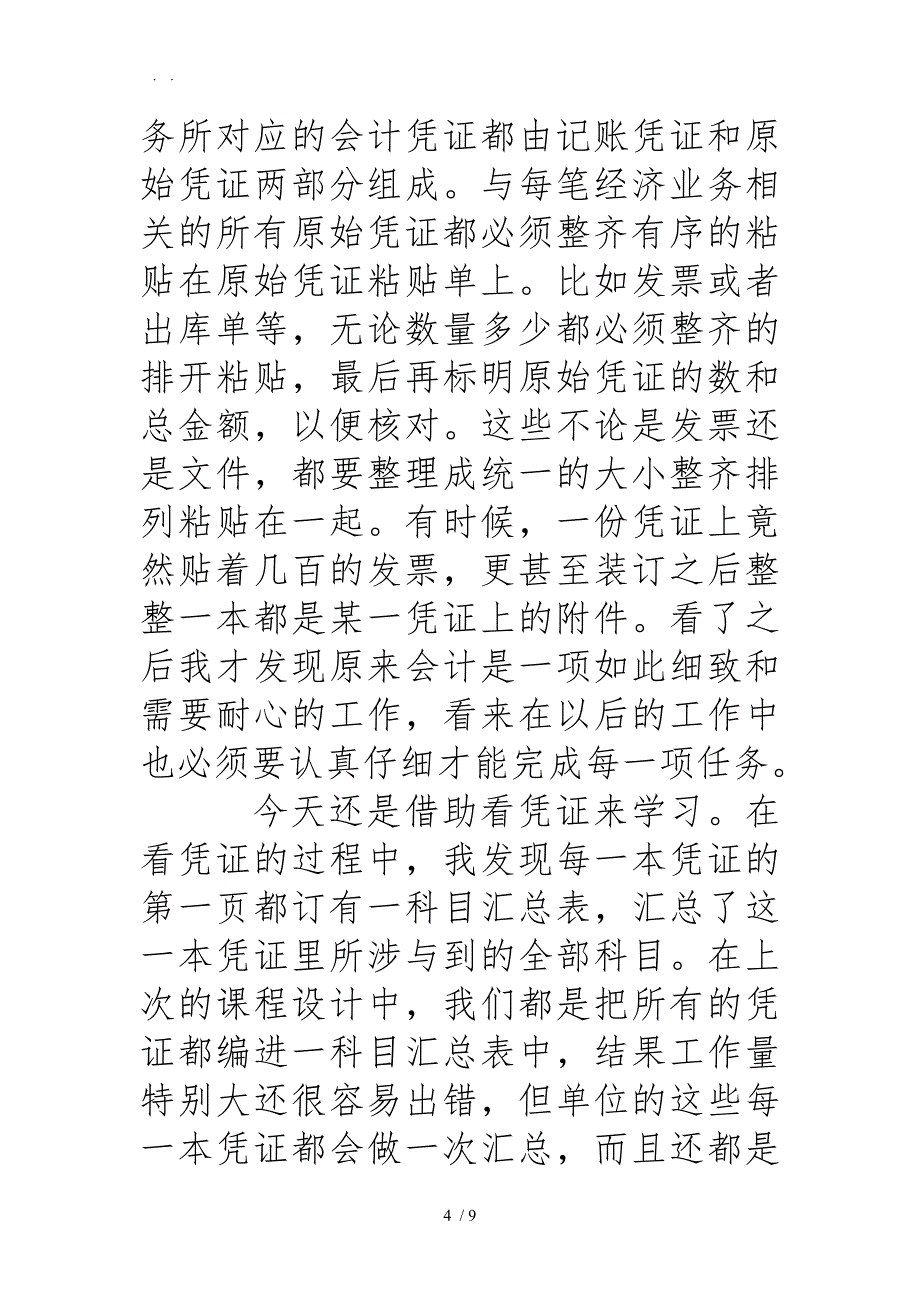 . .
务所对应的会计凭证都由记账凭证和原
始凭证两部分组成。与每笔经济业务相
关的所有原始凭证都必须整齐有序的粘
贴在原始凭证粘贴单上。比如发票或者
出库单等，无论数量多少都必须整齐的
排开粘贴，最后再标明原始凭证的数和
总金额，以便核对。这些不论是发票还
是文件，都要整理成统一的大小整齐排
列粘贴在一起。有时候，一份凭证上竟
然贴着几百的发票，更甚至装订之后整
整一本都是某一凭证上的附件。看了之
后我才发现原来会计是一项如此细致和
需要耐心的工作，看来在以后的工作中
也必须要认真仔细才能完成每一项任务。
今天还是借助看凭证来学习。在
看凭证的过程中，我发现每一本凭证的
第一页都订有一科目汇总表，汇总了这
一本凭证里所涉与到的全部科目。在上
次的课程设计中，我们都是把所有的凭
证都编进一科目汇总表中，结果工作量
特别大还很容易出错，但单位的这些每
一本凭证都会做一次汇总，而且还都是
4 / 9